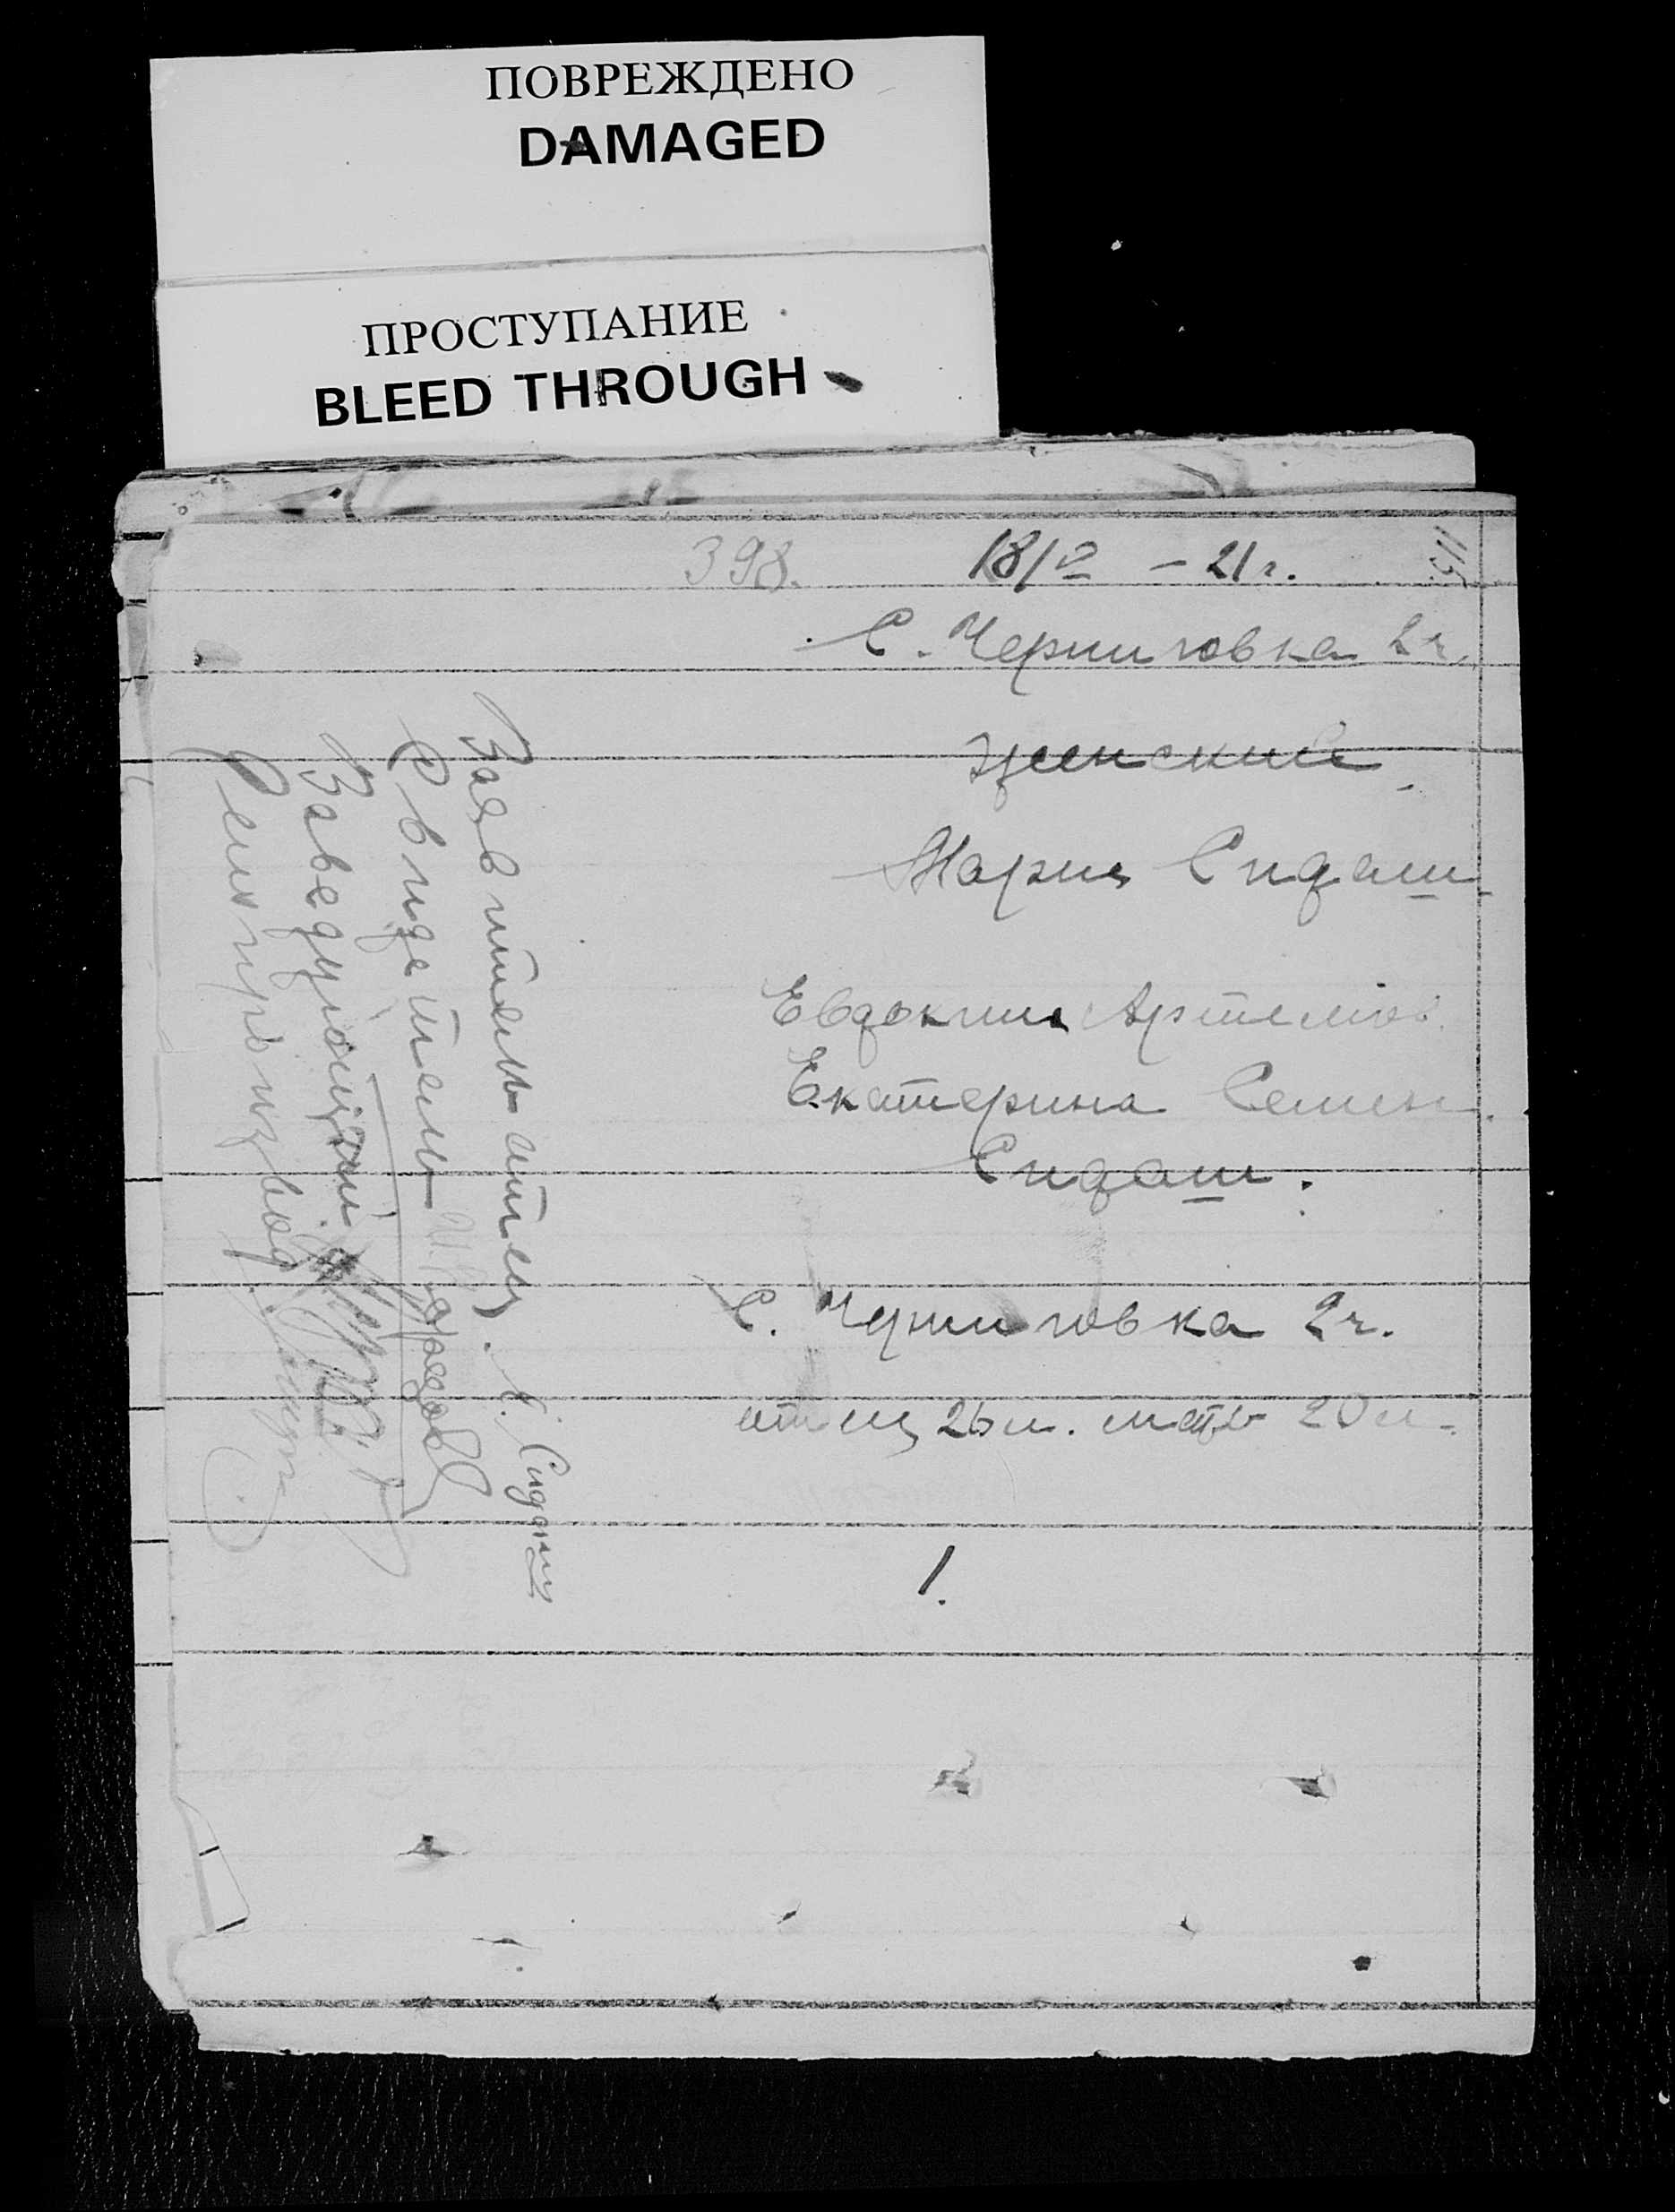 ПОВРЕЖДЕНО
DAMAGED
ПРОСТУПАНИЕ
BLEED THROUGH
115
398. 18/V – 21 г.
С. Черниговка 2 ч.
Женский.
Мария Сидаш
Евдоким Артемов.
Екатерина Семен.
Сидаш.
С. Черниговка 2 ч.
отец 26 л. мать 20 л.
1.
Заявитель отец. Е. Сидаш
Свидетель
Заведующий
Делопроизвод